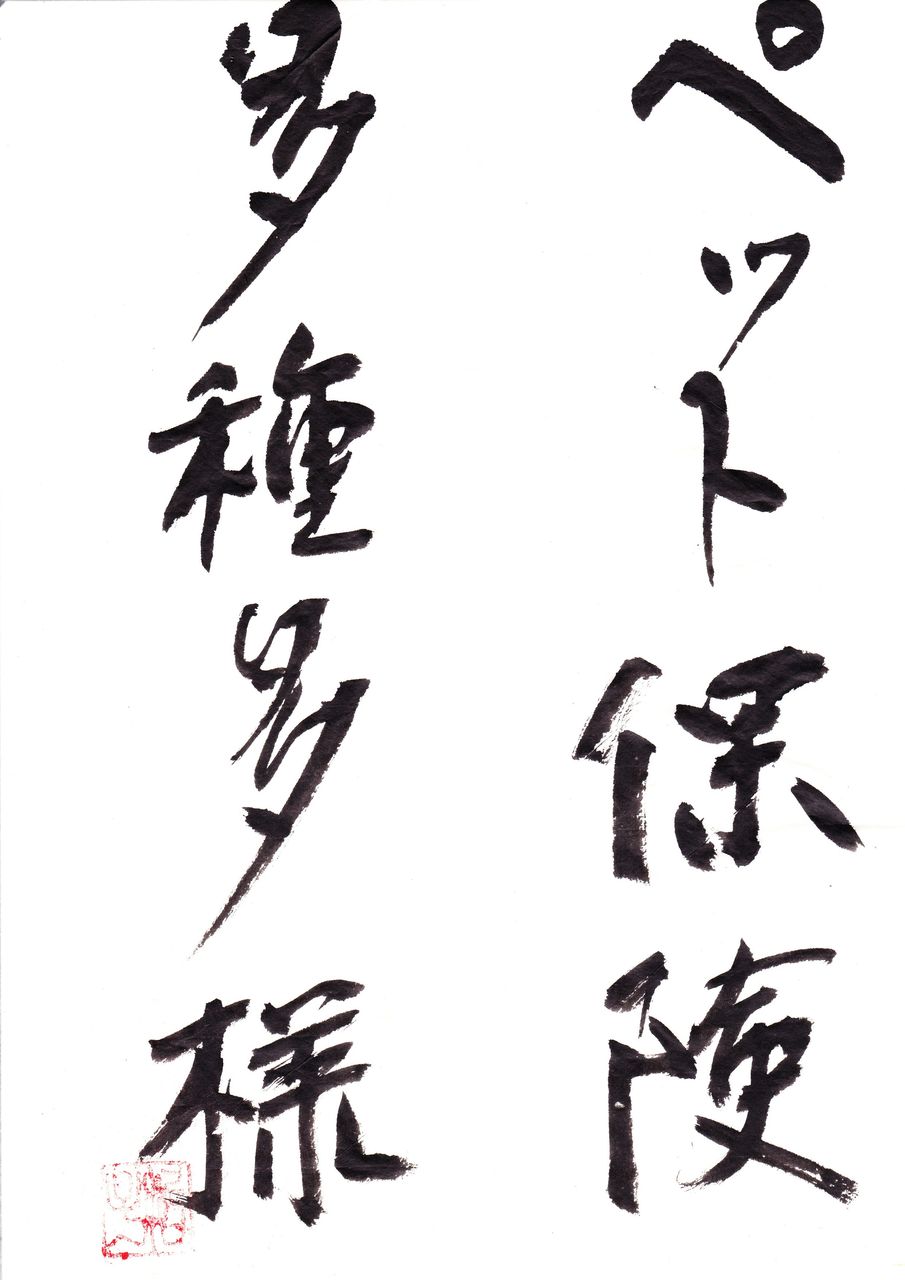 ペット保険
多種多様